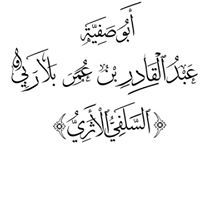 أَبُو صَفِيَّة
عَبْدُ الْقَادِرِ بْنُ عُمَرَ بَلَارَبِي
﴿السَّلَفِيُّ الْأَثَرِيُّ﴾